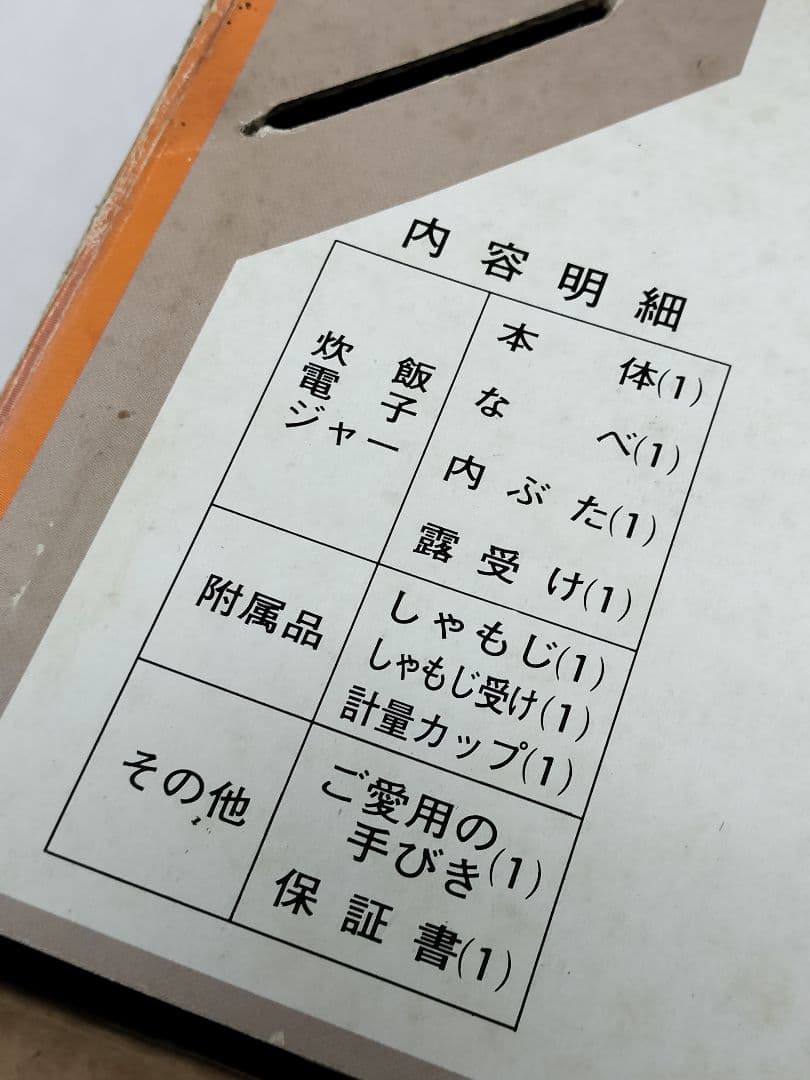 内容明細
炊飯
電子
ジャー
本体(1)
なべ(1)
内ぶた(1)
露受け(1)
附属品
しゃもじ(1)
しゃもじ受け(1)
計量カップ(1)
その他
ご愛用の
手びき(1)
保証書(1)